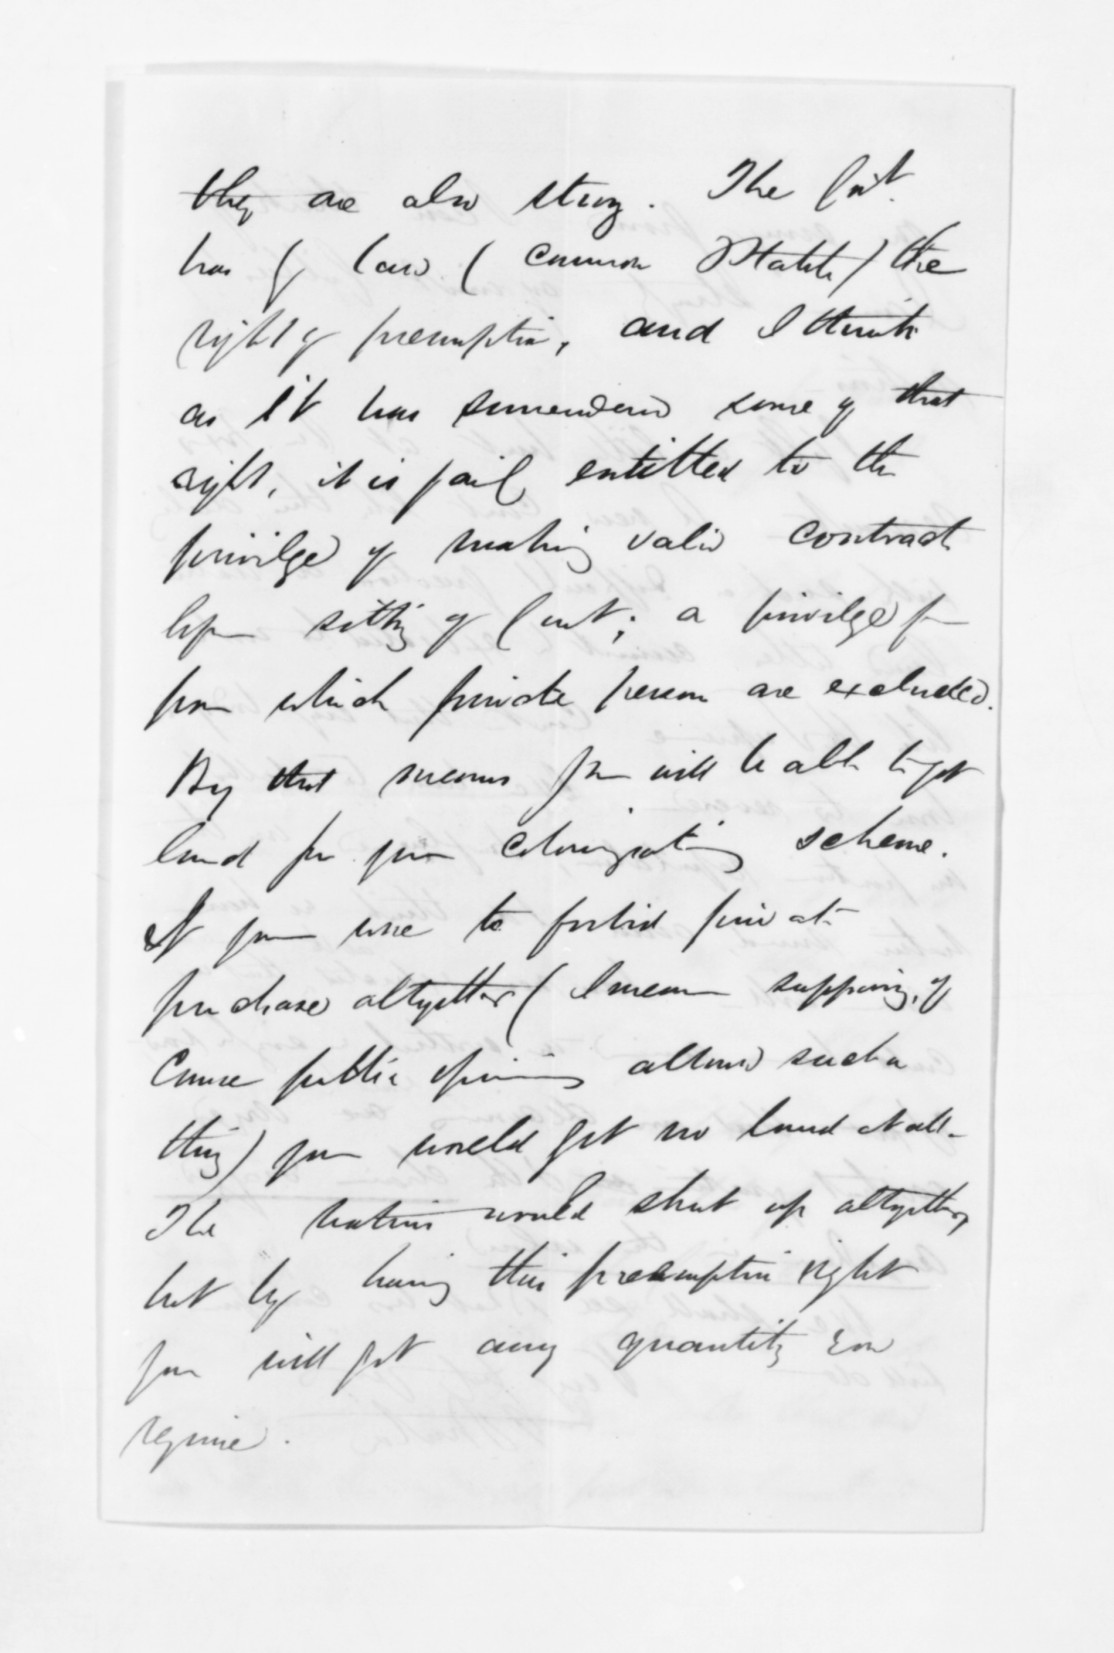 they are also strong. The Govt.
has by law (Common & Statute) the
right of preemption, and I think
as it has surrendered some of that
right, it is fairly entitled to the
privilege of making valid contract
before sitting of Court; a privilege
from which private person are excluded.
By that means you will be able to get
land for your colonizating scheme.
If you were to forbid private
purchase altogether (I mean supposing, of
course public opinion allowed such a
thing) you would get no land at all -
The natives would shut up altogether,
but by having this preemption right
you will get any quantity you
require.